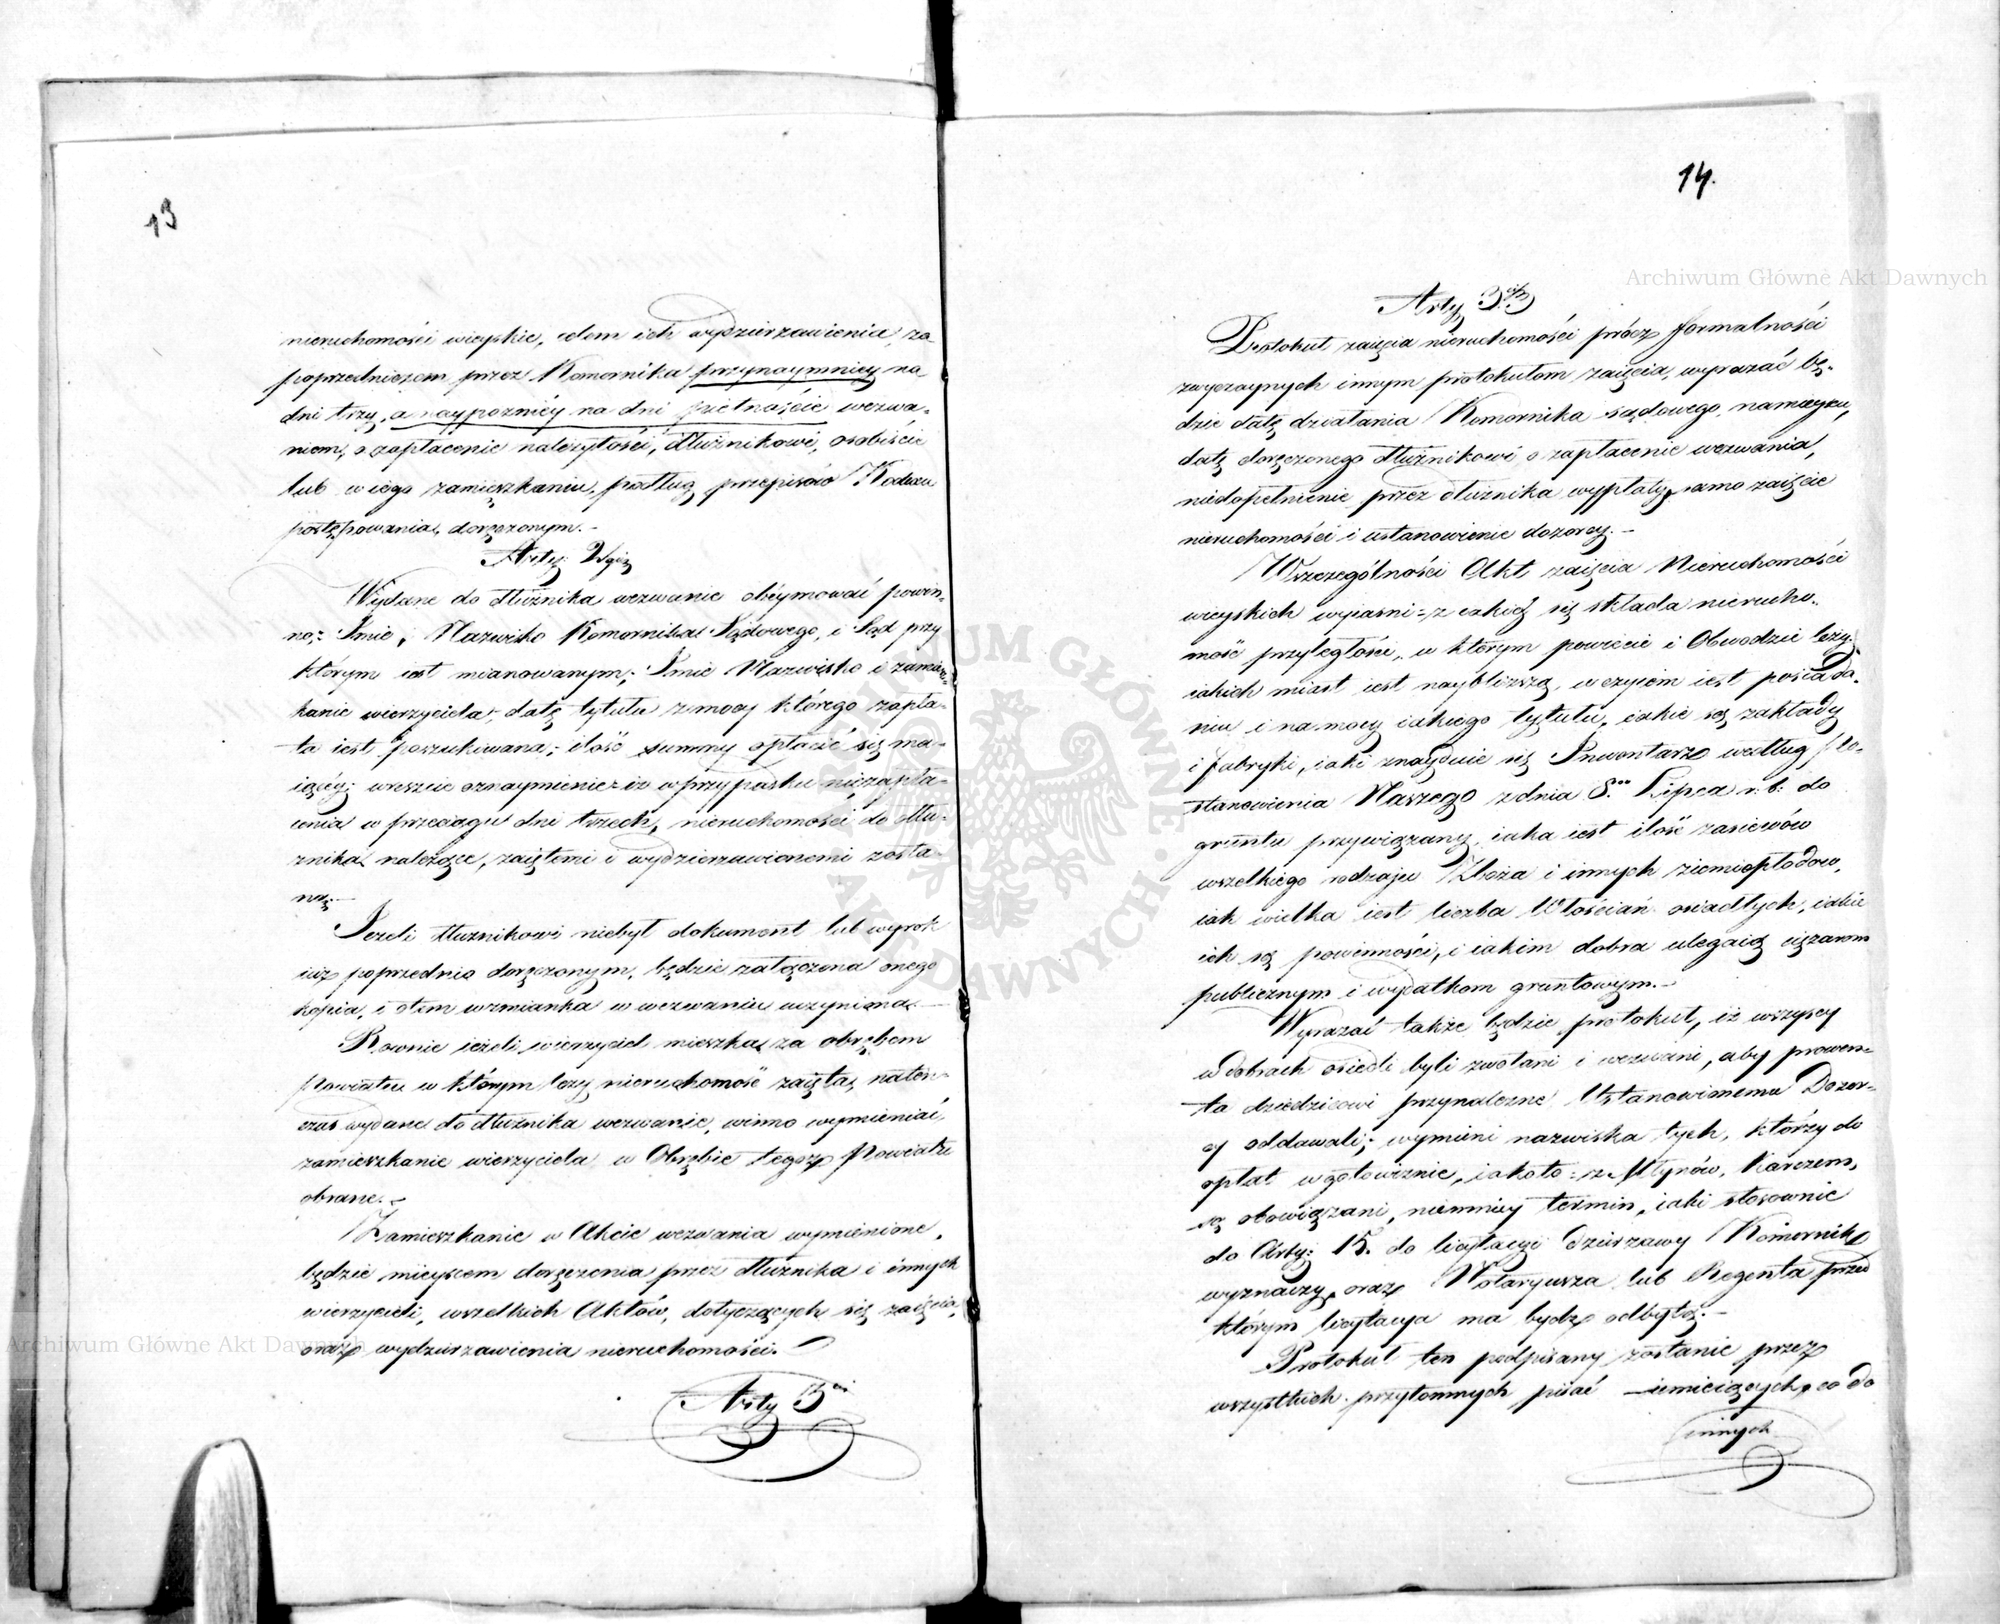 13
nieruchomości wieyskie, celem ich wydzierzawienia, za
poprzedniczem przez Komornika przynaymniey na
dni trzy, a naypozniéy na dni pietnaście wezwa-
niem, o zapłacenie należytości, dłużnikowi, osobiście
lub w iego zamieszkaniu, podług przepisów Kodexu
postępowania, doręczonym.-
Arty: 2gi
Wydane do dłużnika wezwanie obéymować powin-
no: Imie, Nazwisko Komornika Sądowego, i Sąd przy
którym iest mianowanym; Imie Nazwisko i zamiesz-
kanie wierzyciela, datę tytułu z mocy którego zapła-
ta iest poszukiwana; ilość summy opłacić się ma-
iącéy; wreszcie oznaymienie iż w przypadku niezapła-
cenia w przeciągu dni trzech, nieruchomości do dłu-
żnika należące, zaiętemi i wydzierzawionemi zosta-
ną.-
Jeżeli dłużnikowi niebył dokument lub wyrok
iuż poprzednio doręczonym, będzie załączona onego
kopia, i otem wzmianka w wezwaniu uczyniona.-
Rownie ieżeli wierzyciel mieszka za obrębem
Powiatu w którym leży nieruchomość zaięta, naten-
czas wydane do dłużnika wezwanie, winno wymieniać
zamieszkanie wierzyciela w Obrębie tegoż Powiatu
obrane.-
Zamieszkanie w Akcie wezwania wymienione,
będzie mieyscem doręczenia przez dłużnika i innych
wierzycieli, wszelkich Aktów, dotyczących się zaięcia,
oraz wydzierzawienia nieruchomości.-
Arty 3ci
14.
Arty 3ci
Protokuł zaięcia nieruchomości prócz formalności
zwyczaynych innym protokułom zaięcia, wyrazać bę-
dzie datę działania Komornika sądowego,
datę doręczonego dłużnikowi o zapłacenie wezwania,
niedopełnienie przez dłużnika wypłaty, samo zaięcie
nieruchomości i ustanowienie dozorcy.-
Wszczególności Akt zaięcia Nieruchomości
wieyskich wyiaśni: z iakich się składa nierucho-
mość przyległości, w którym powiecie i Obwodzie leży,
iakich miast iest naybliższą, w czyiém iest posiada-
niu i na mocy iakiego tytułu, iakie są zakłady
i fabryki, iaki znayduie się Inwentarz według Po-
stanowienia Naszego z dnia 8.go Lipca r. b. do
gruntu przywiązany, iaka iest ilość zasiewów
wszelkiego rodzaju Zboża i innych ziemiopłodów,
iak wielka iest liczba Włościan osiadłych, iakie
ich są powinności, i iakim dobra ulegaią ciężarom
publicznym i wydatkom gruntowym.-
Wyrazać także będzie protokuł, iż wszyscy
w dobrach osiedli byli zwołani i wezwani, aby prowen-
ta dziedzicowi przynależne Ustanowionemu Dozor-
cy oddawali; wymieni nazwiska tych, którzy do
opłat w gotowiznie, iakoto: z Młynów, Karczem,
są obowiązani, niemniey termin, iaki stosownie
do Arty: 15. do licytacyi dzierzawy Komornik
wyznaczy, oraz Notaryusza lub Regenta przed
którym licytacya ma bydź odbytą.-
Protokuł ten podpisany zostanie przez
wszystkich przytomnych pisać umieiących, co do
innych
Archiwum Główne Akt Dawnych
Archiwum Główne Akt Dawnych
ARCHIWUM GŁÓWNE · AKT DAWNYCH ·